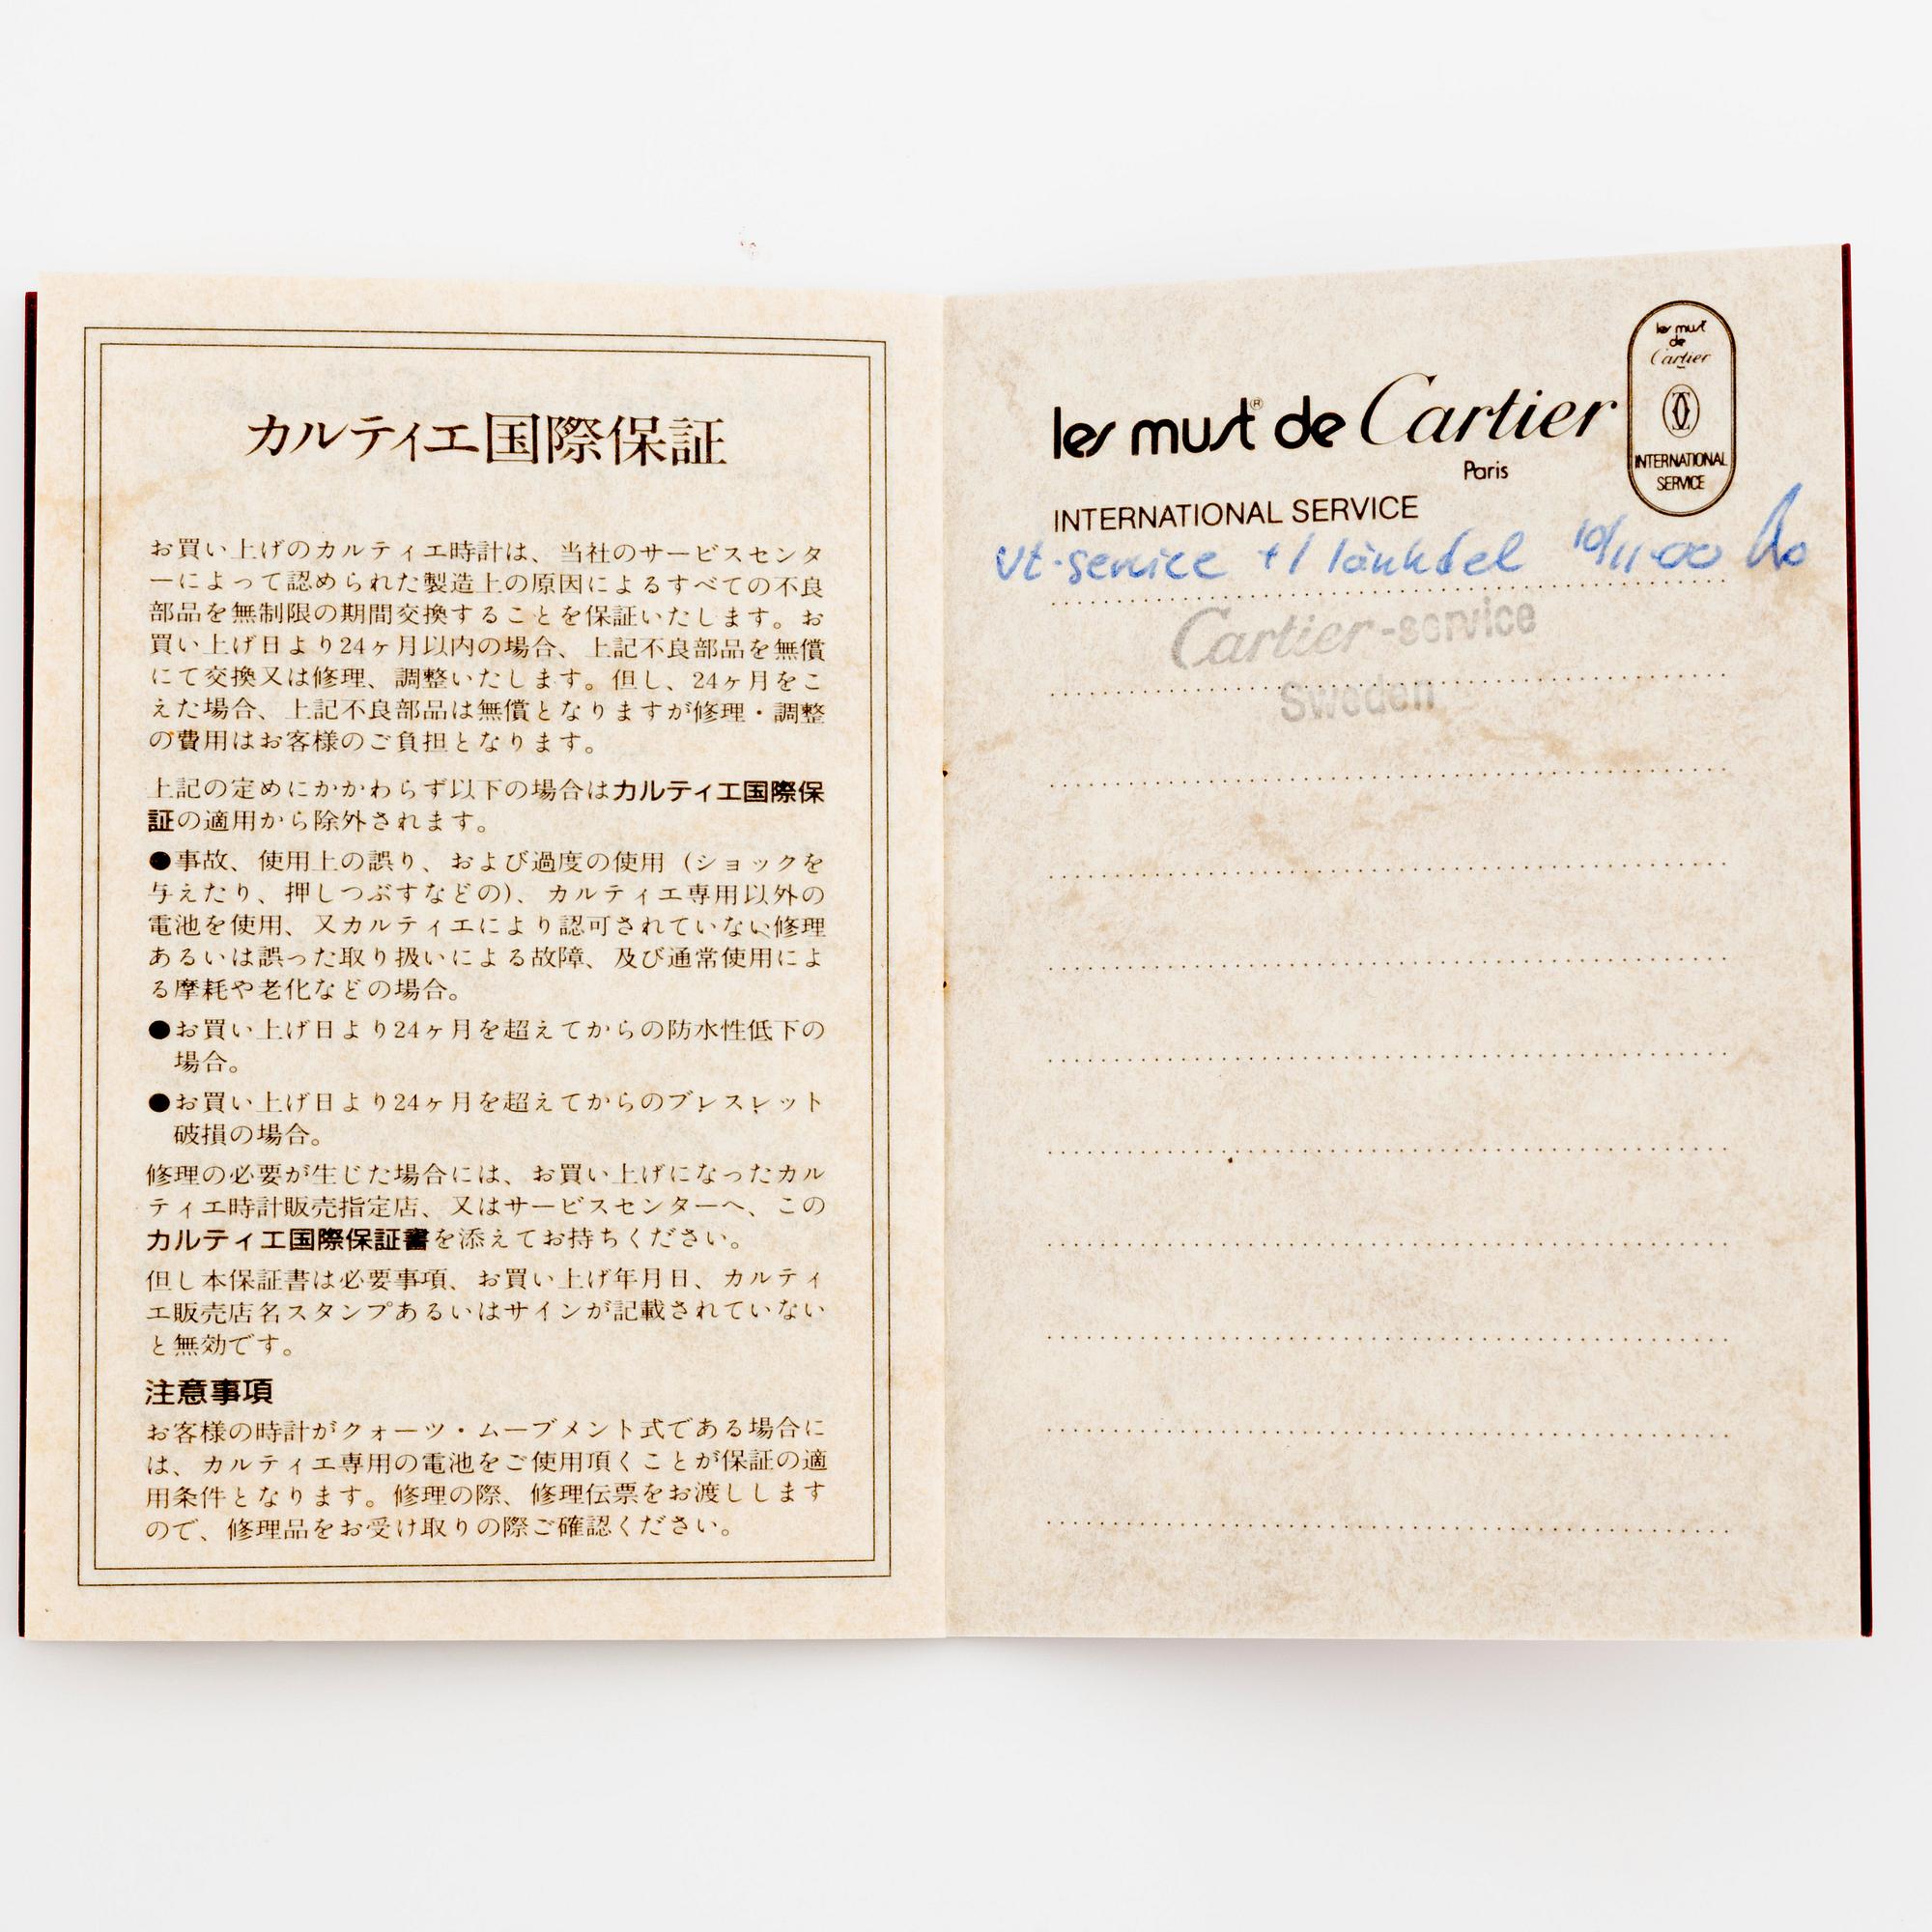 カルティエ国際保証
お買い上げのカルティエ時計は、当社のサービスセンタ
ーによって認められた製造上の原因によるすべての不良
部品を無制限の期間交換することを保証いたします。お
買い上げ日より24ヶ月以内の場合、上記不良部品を無償
にて交換又は修理、調整いたします。但し、24ヶ月をこ
えた場合、上記不良部品は無償となりますが修理・調整
の費用はお客様のご負担となります。
上記の定めにかかわらず以下の場合はカルティエ国際保
証の適用から除外されます。
●事故、使用上の誤り、および過度の使用（ショックを
与えたり、押しつぶすなどの）、カルティエ専用以外の
電池を使用、又カルティエにより認可されていない修理
あるいは誤った取り扱いによる故障、及び通常使用によ
る摩耗や老化などの場合。
●お買い上げ日より24ヶ月を超えてからの防水性低下の
場合。
●お買い上げ日より24ヶ月を超えてからのブレスレット
破損の場合。
修理の必要が生じた場合には、お買い上げになったカル
ティエ時計販売指定店、又はサービスセンターへ、この
カルティエ国際保証書を添えてお持ちください。
但し本保証書は必要事項、お買い上げ年月日、カルティ
エ販売店名スタンプあるいはサインが記載されていない
と無効です。
注意事項
お客様の時計がクォーツ・ムーブメント式である場合に
は、カルティエ専用の電池をご使用頂くことが保証の適
用条件となります。修理の際、修理伝票をお渡しします
ので、修理品をお受け取りの際ご確認ください。
les must® de Cartier
Paris
INTERNATIONAL SERVICE
les must
de
Cartier
INTERNATIONAL
SERVICE
vt-service +1 länkdel 10/11-00
Cartier-service
Sweden